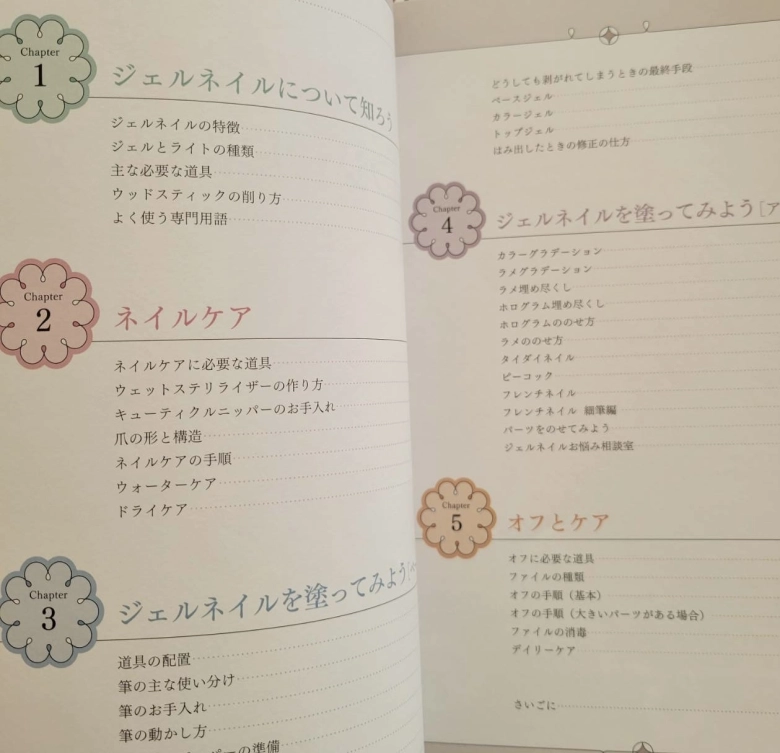 Chapter
1
ジェルネイルについて知ろう
ジェルネイルの特徴
ジェルとライトの種類
主な必要な道具
ウッドスティックの削り方
よく使う専門用語
Chapter
2
ネイルケア
ネイルケアに必要な道具
ウェットステリライザーの作り方
キューティクルニッパーのお手入れ
爪の形と構造
ネイルケアの手順
ウォーターケア
ドライケア
Chapter
3
ジェルネイルを塗ってみよう
道具の配置
筆の主な使い分け
筆のお手入れ
筆の動かし方
パーの準備
どうしても剥がれてしまうときの最終手段
ベースジェル
カラージェル
トップジェル
はみ出したときの修正の仕方
Chapter
4
ジェルネイルを塗ってみよう［ア
カラーグラデーション
ラメグラデーション
ラメ埋め尽くし
ホログラム埋め尽くし
ホログラムののせ方
ラメののせ方
タイダイネイル
ピーコック
フレンチネイル
フレンチネイル 細筆編
パーツをのせてみよう
ジェルネイルお悩み相談室
Chapter
5
オフとケア
オフに必要な道具
ファイルの種類
オフの手順（基本）
オフの手順（大きいパーツがある場合）
ファイルの消毒
デイリーケア
さいごに